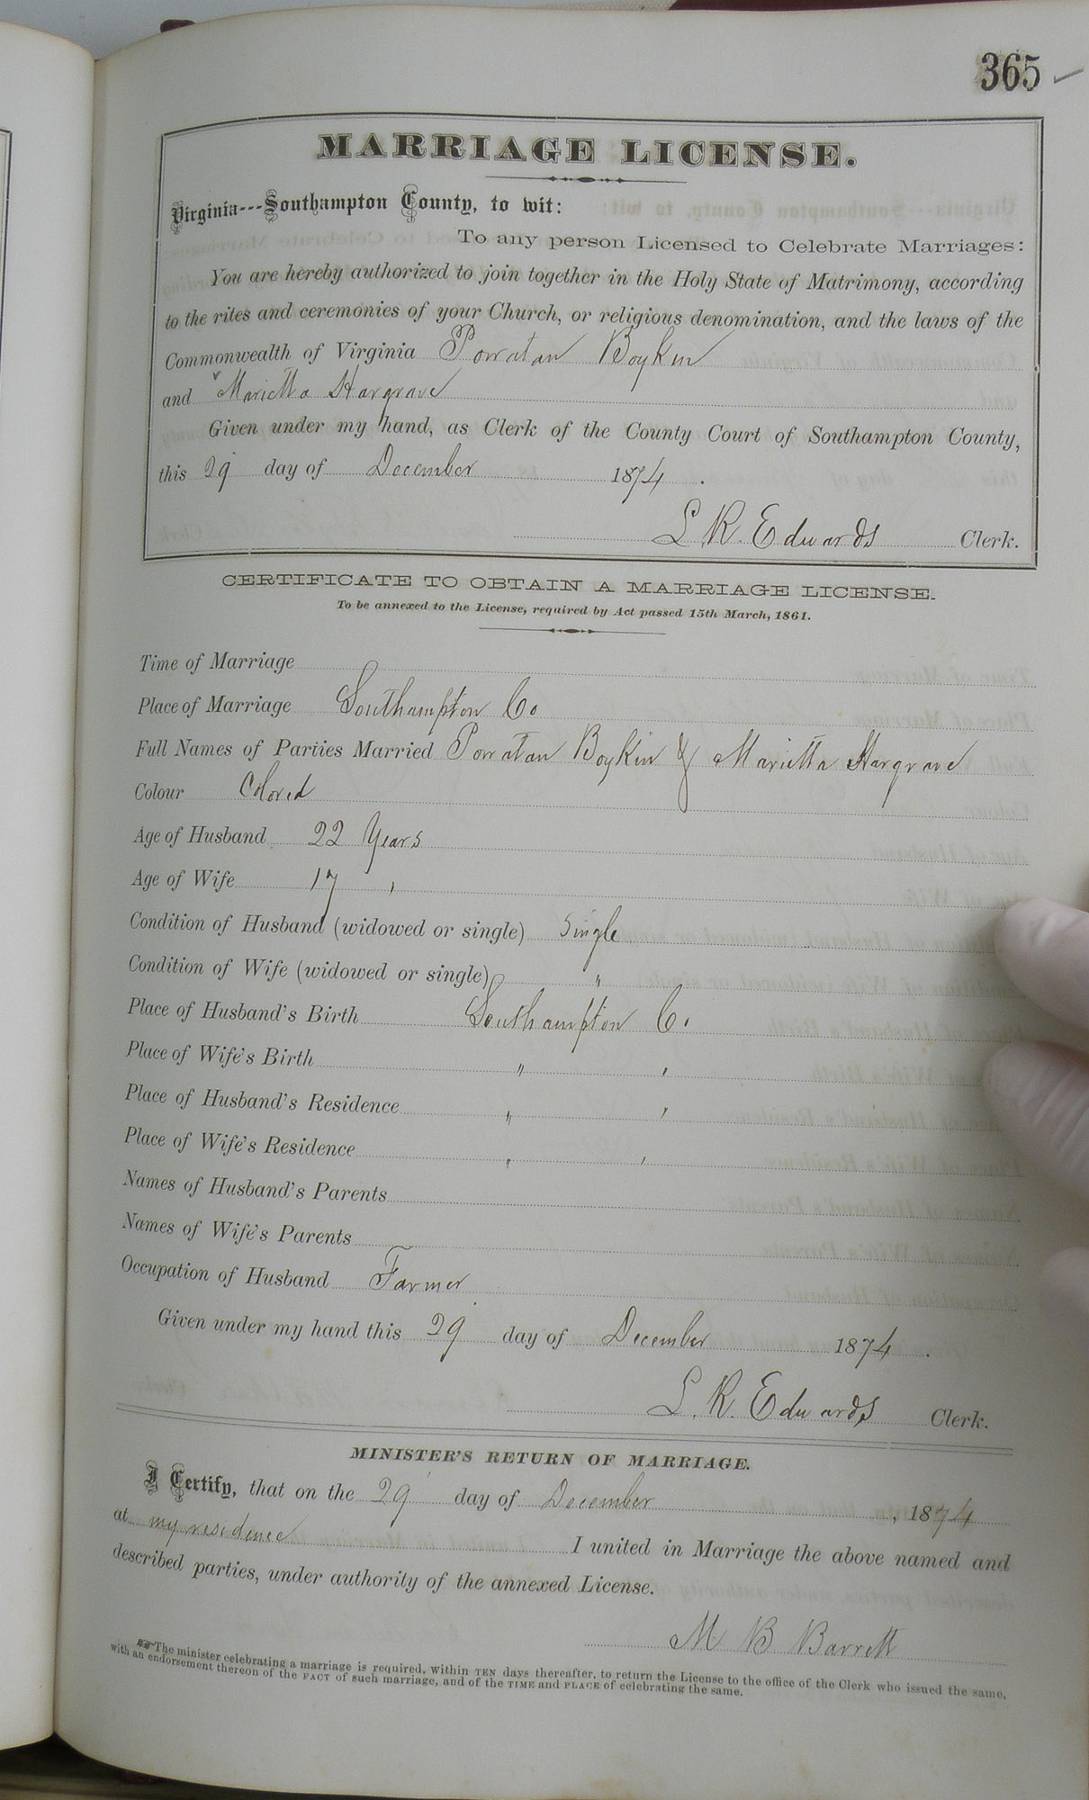 365
MARRIAGE LICENSE.
Virginia---Southampton County, to wit:
To any person Licensed to Celebrate Marriages:
You are hereby authorized to join together in the Holy State of Matrimony, according
to the rites and ceremonies of your Church, or religious denomination, and the laws of the
Commonwealth of Virginia Powatan Boykin
and Marietta Hargrave
Given under my hand, as Clerk of the County Court of Southampton County,
this 29 day of December 1874.
L. R. Edwards Clerk.
CERTIFICATE TO OBTAIN A MARRIAGE LICENSE.
To be annexed to the License, required by Act passed 15th March, 1861.
Time of Marriage
Place of Marriage Southampton Co
Full Names of Parties Married Powatan Boykin & Marietta Hargrave
Colour Colored
Age of Husband 22 Years
Age of Wife 17 "
Condition of Husband (widowed or single) Single
Condition of Wife (widowed or single) "
Place of Husband's Birth Southampton Co.
Place of Wife's Birth " "
Place of Husband's Residence " "
Place of Wife's Residence " "
Names of Husband's Parents
Names of Wife's Parents
Occupation of Husband Farmer
Given under my hand this 29 day of December 1874.
L. R. Edwards Clerk.
MINISTER'S RETURN OF MARRIAGE.
I Certify, that on the 29 day of December, 1874
at my residence I united in Marriage the above named and
described parties, under authority of the annexed License.
M B Barrett
The minister celebrating a marriage is required, within TEN days thereafter, to return the License to the office of the Clerk who issued the same,
with an endorsement thereon of the FACT of such marriage, and of the TIME and PLACE of celebrating the same.